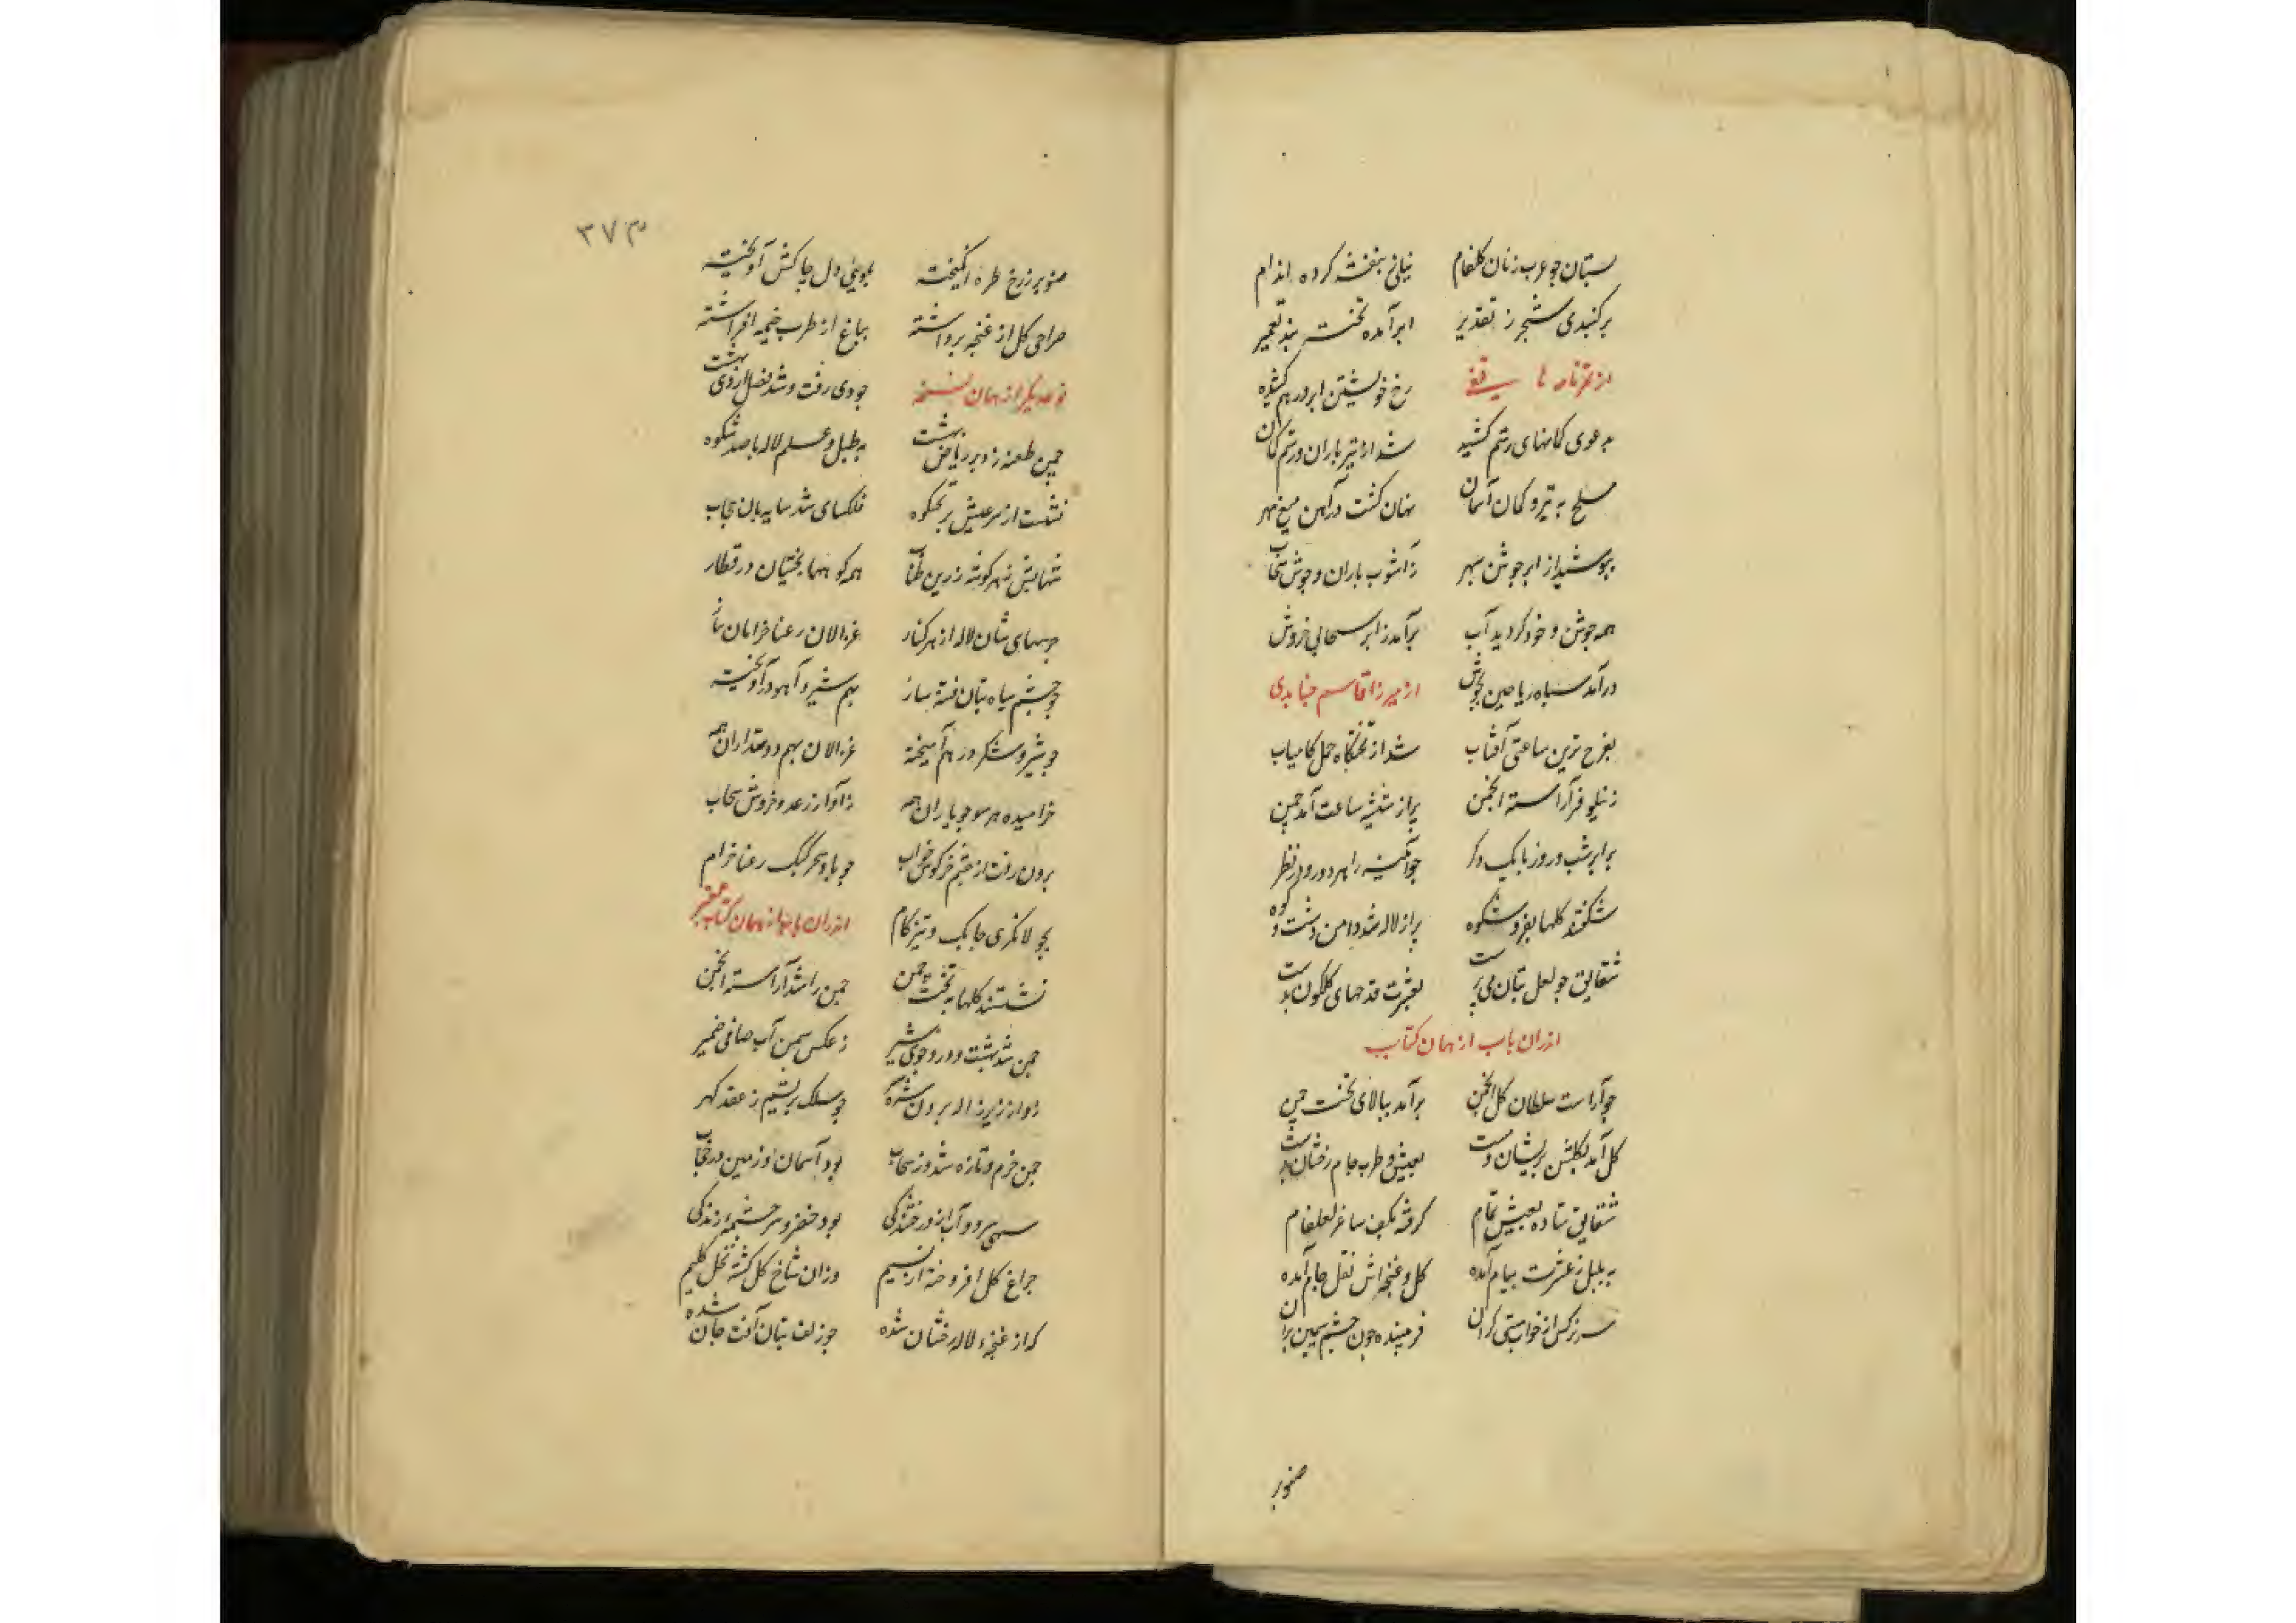 بستان چو عرب زنان کلفام نیلی بنفشه کرده اندام
بر کنبدی شجر ز تقدیر ابر آمده تخت بند تعمیر
رخ خویشتن ابر در هم کشید
بدعوی کمانهای رستم کشید شد از تیر باران رستم کمان
مسلح به تیر و کمان آسمان نهان کشت در آهن میغ مهر
بپوشید از ابر جوشن سپهر ز آشوب باران و جوش سحاب
همه جوشن و خود کردید آب برآمد ز ابر خروش
درآمد سپاه ریاحین بجوش از میرزا قاسم جنابدی
بفرخ ترین ساعتی آفتاب شد از تختکاه حمل کامیاب
ز نیلوفر آراسته انجمن پر از شیشه ساعت آمد چمن
برابر شب و روز با یک دکر چو آئینه را بهر دو رو در نظر
شکفتند کلها بفر و شکوه پر از لاله شد دامن دشت و کوه
شقایق چو لعل بتان می پرست بعشرت قدحهای کلکون بدست
اندران باب از همان کتاب
چو آراست سلطان کل انجمن برآمد ببالای تخت چمن
کل آمد بکلشن پریشان و مست بعیش و طرب جام رخشان بدست
شقایق ستاده بعیش تمام کرفته بکف ساغر لعلفام
به بلبل ز عشرت پیام آمده کل و غنچه اش نقل جام آمده
سر نرکس از خواب مستی کران فریبنده چون چشم سیمین بران
صنوبر
۳۷۳
صنوبر ز رخ طره انکیخته بمویی دل چاکش آویخته
صراحی کل از غنچه برداشته بباغ از طرب خیمه افراشته
نوعدیکر از همان نسخه چو دی رفت و شد فصل اردی بهشت
چمن طعنه زد بر ریاض بهشت به طبل و علم لاله با صد شکوه
نشست از سر عیش بر تخت کوه فلکسای شد سایه بان سحاب
ز هر کوشه زرین طناب همه کوهها بختیان در قطار
جرسهای شان لاله از هر کنار غزالان رعنا خرامان بناز
چو چشم سیاه بتان فتنه ساز بهم شیر و آهو درآویخته
چو شیر و شکر در هم آمیخته غزالان بهم دوستداران همه
خرامیده هر سو چو یاران همه ز آواز رعد و خروش سحاب
برون رفت از چشم خرکوش خواب چو باد سحر کبک رعنا خرام
بجولانکری چابک و تیز کام اندران از همان کتاب
نشستند کلها به تخت چمن چمن را شد آراسته انجمن
چمن شد بهشت و درو جوی شیر ز عکس سمن آب صافی ضمیر
چو سلک بریشم ز عقد کهر
چمن خرم و تازه شد از سحاب بود آسمان و زمین در نقاب
سهی سرو و آب از درخشندکی بود خضر و سرچشمه زندکی
چراغ کل افروخته از نسیم وزان شاخ کل کشته نخل کلیم
که از غنچه لاله رخشان شده چو زلف بتان آفت جان شده